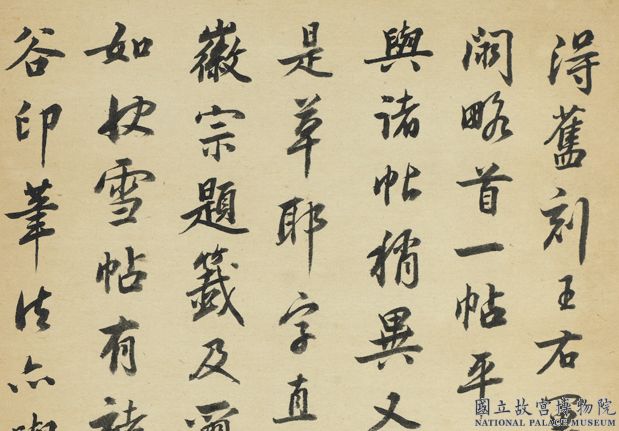 得舊刻王右軍
闊略首一帖平
與諸帖稍異又
是草耶字直
徽宗題籤及
如快雪帖有
谷印筆法亦
國立故宮博物院
NATIONAL PALACE MUSEUM